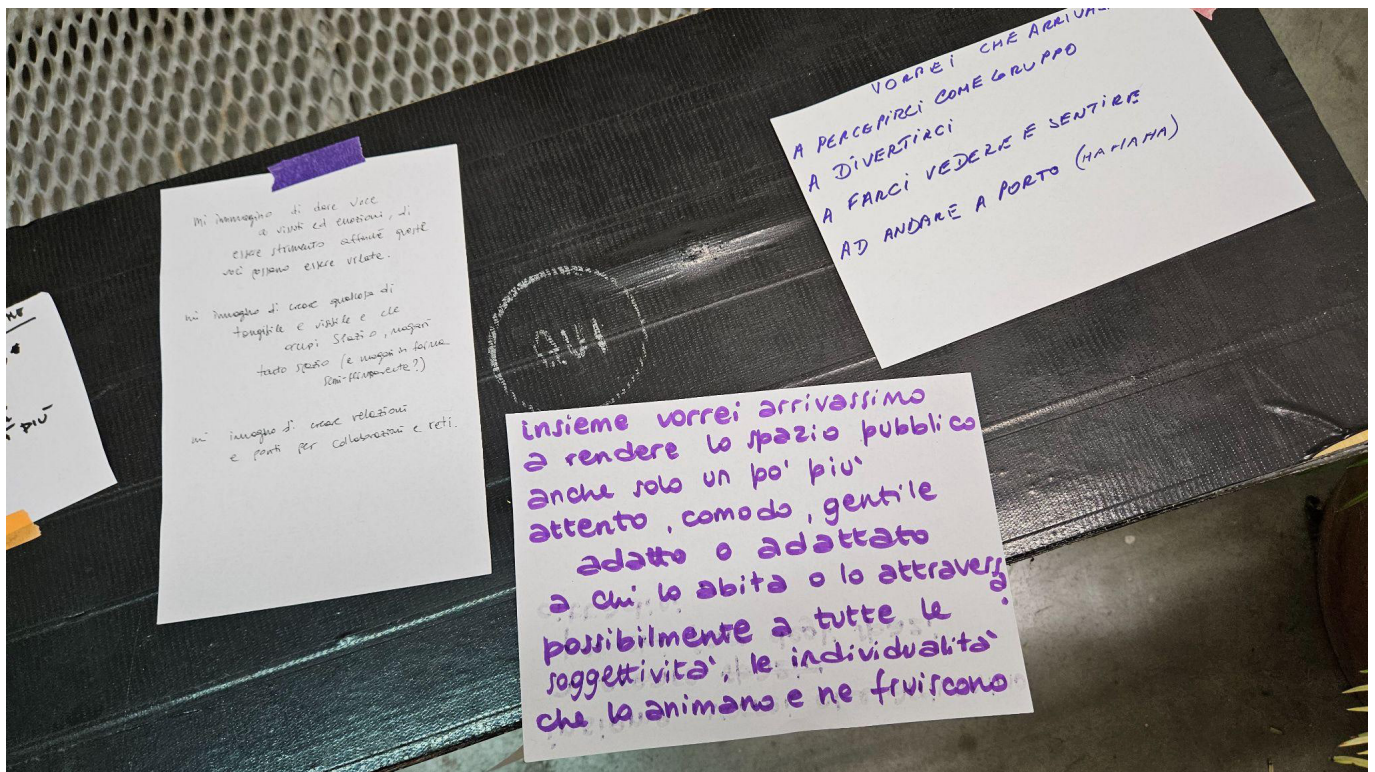 mi immagino di dare voce
a vissuti ed emozioni, di
essere strumento affinché queste
voci possano essere urlate.
mi immagino di creare qualcosa di
tangibile e visibile e che
occupi spazio, magari
tanto spazio (e magari in forma
semi-permanente?)
mi immagino di creare relazioni
e ponti per collaborazioni e reti.
QUI
VORREI CHE
A PERCEPIRCI COME GRUPPO
A DIVERTIRCI
A FARCI VEDERE E SENTIRE
AD ANDARE A PORTO (HAHAHA)
insieme vorrei arrivassimo
a rendere lo spazio pubblico
anche solo un po' più
attento, comodo, gentile
adatto o adattato
a chi lo abita o lo attraversa
possibilmente a tutte le
soggettività, le individualità
che lo animano e ne fruiscono
PIÙ